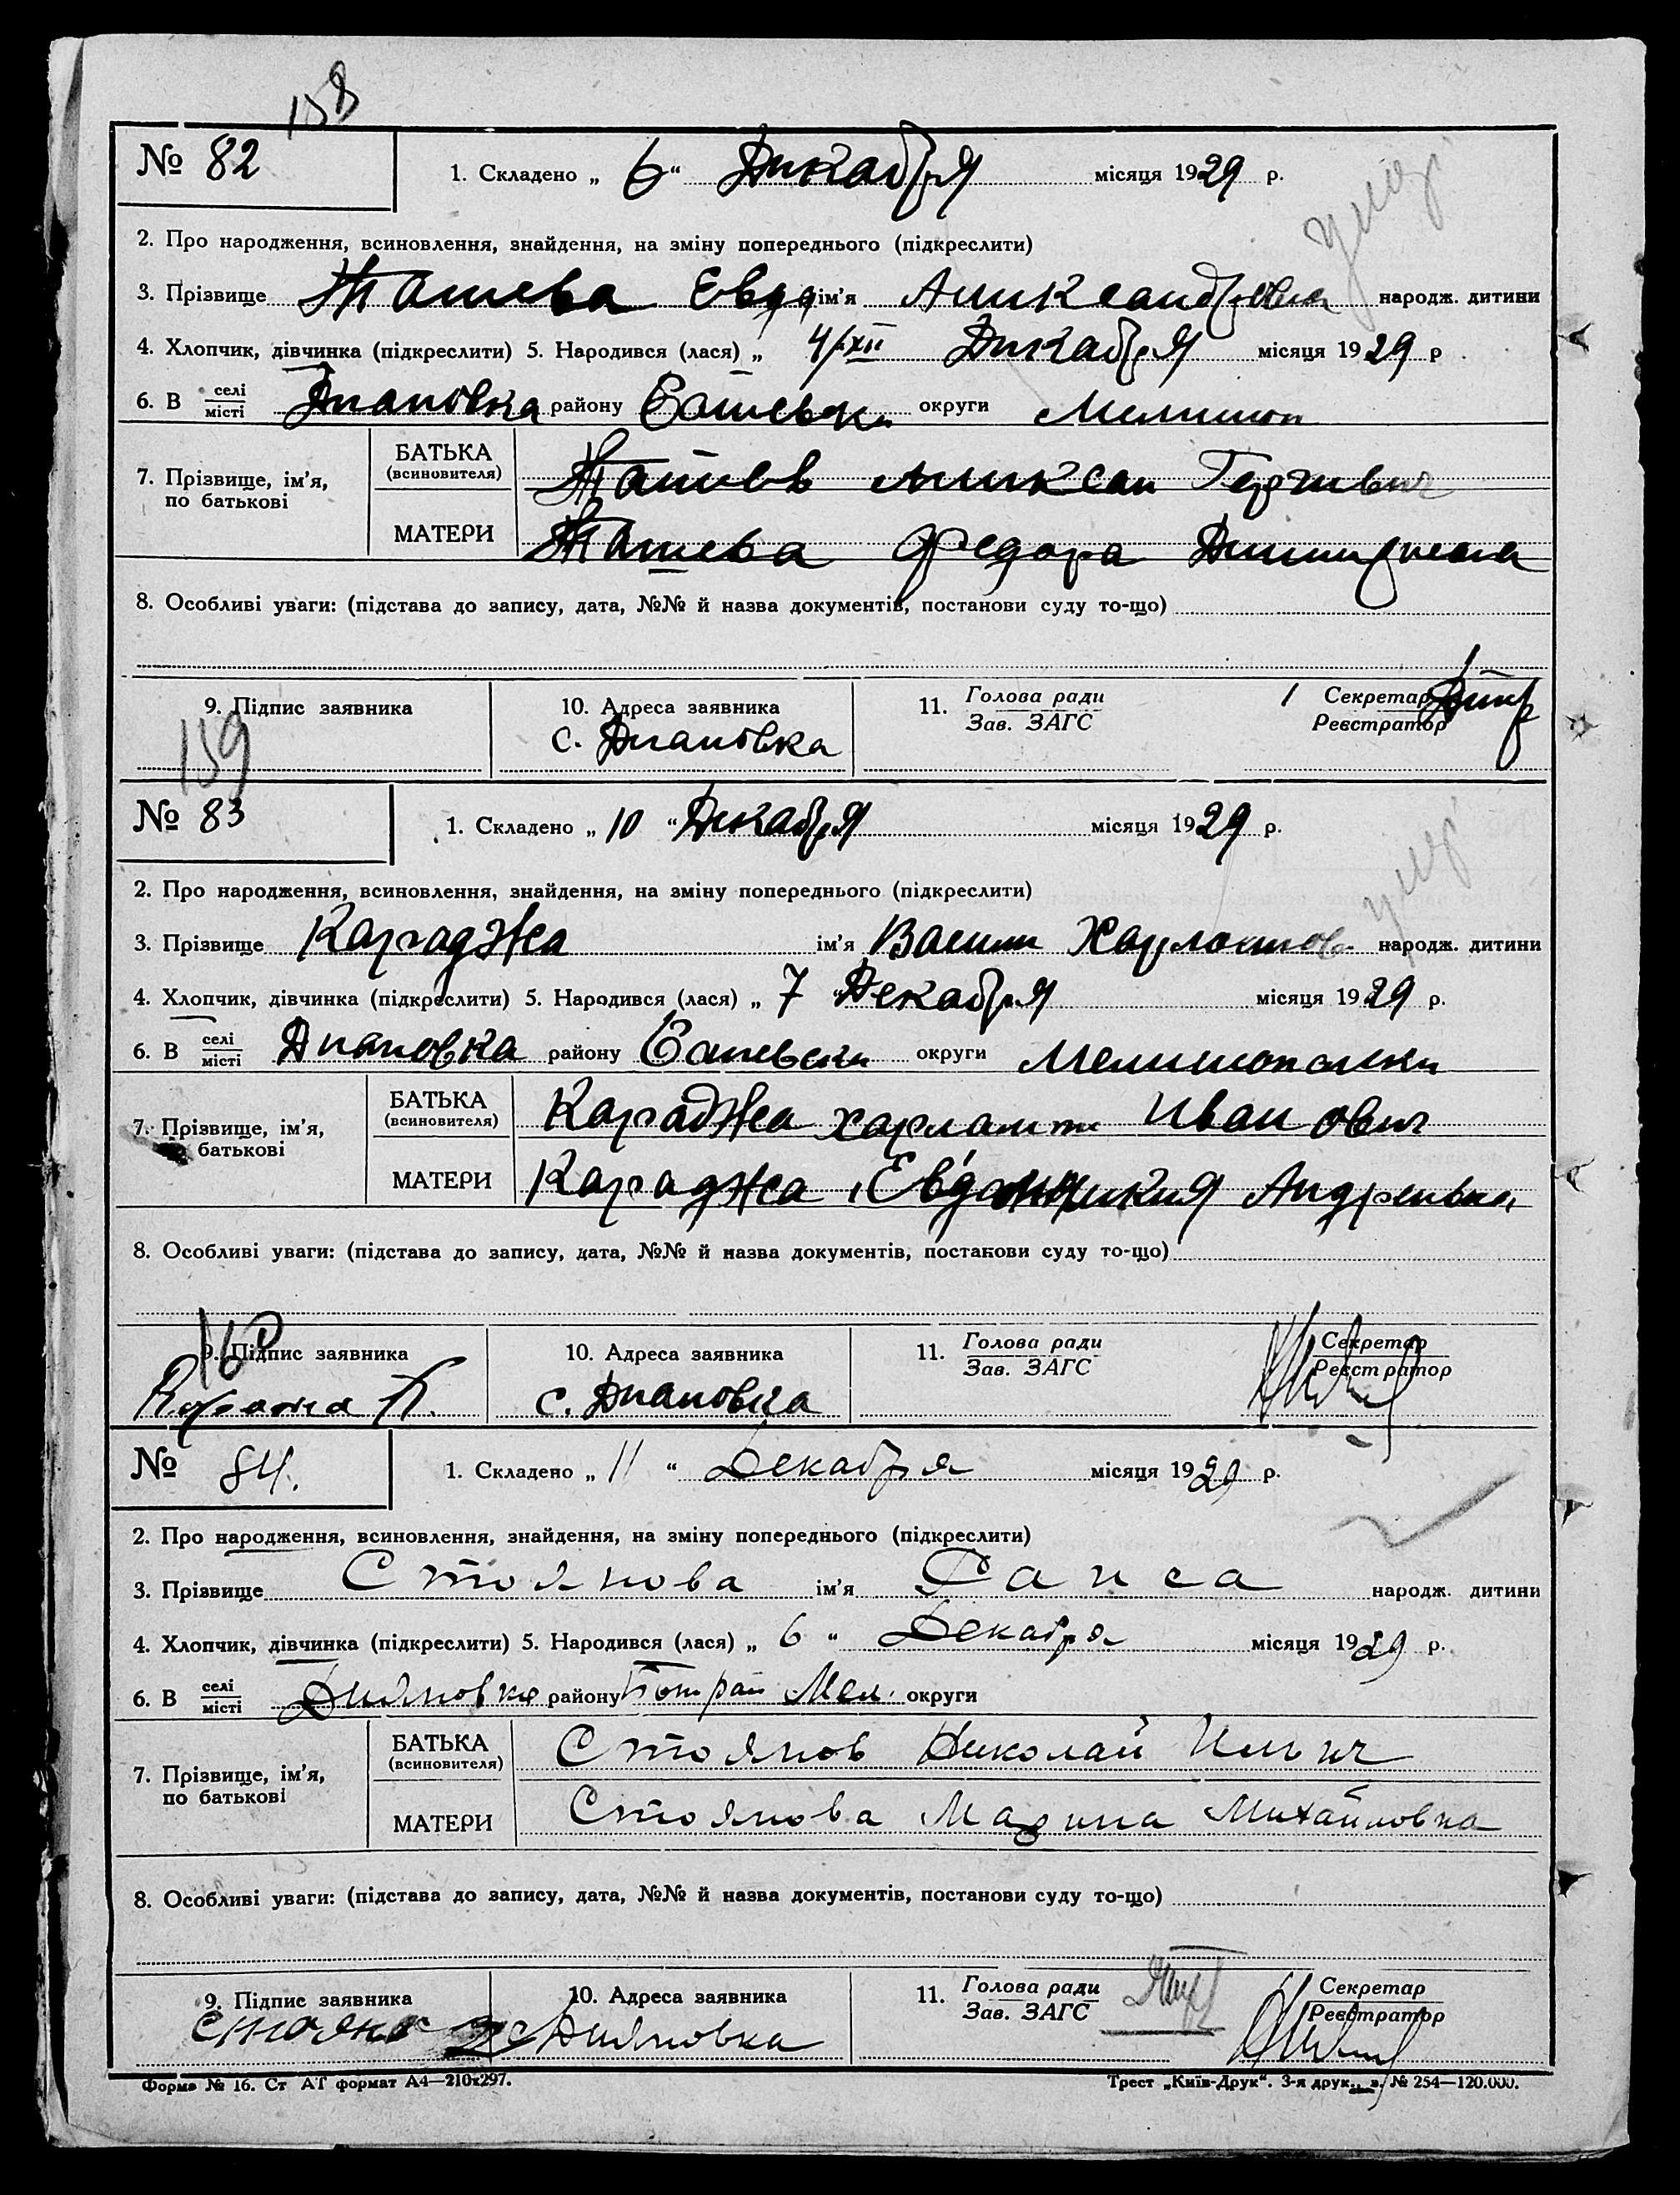 158
№ 82
1. Складено „ 6 “ Дикабря місяця 1929 р.
умер
2. Про народження, всиновлення, знайдення, на зміну попереднього (підкреслити)
3. Прізвище Ташева Евд ім'я народж. дитини
4. Хлопчик, дівчинка (підкреслити) 5. Народився (лася) „ 4/XII Дикабря місяця 1929 р
6. В селі/місті Диановка району округи
7. Прізвище, ім'я, по батькові
БАТЬКА (всиновителя)
МАТЕРИ Ташева Федора
8. Особливі уваги: (підстава до запису, дата, №№ й назва документів, постанови суду то-що)
9. Підпис заявника
10. Адреса заявника
с. Диановка
11. Голова ради
Зав. ЗАГС
Секретар
Реєстратор
159
№ 83
1. Складено „ 10 “ Декабря місяця 1929 р.
умер
2. Про народження, всиновлення, знайдення, на зміну попереднього (підкреслити)
3. Прізвище Караджа ім'я Васили народж. дитини
4. Хлопчик, дівчинка (підкреслити) 5. Народився (лася) „ 7 “ Декабря місяця 1929 р.
6. В селі/місті Диановка району округи
7. Прізвище, ім'я, по батькові
БАТЬКА (всиновителя) Караджа Харлампи Иванович
МАТЕРИ Караджа Андреивна
8. Особливі уваги: (підстава до запису, дата, №№ й назва документів, постанови суду то-що)
160
9. Підпис заявника
10. Адреса заявника
с. Диановка
11. Голова ради
Зав. ЗАГС
Секретар
Реєстратор
№ 84.
1. Складено „ 11 “ Декабря місяця 1929 р.
2. Про народження, всиновлення, знайдення, на зміну попереднього (підкреслити)
3. Прізвище Стоянова ім'я Раиса народж. дитини
4. Хлопчик, дівчинка (підкреслити) 5. Народився (лася) „ 6 “ Декабря місяця 1929 р.
6. В селі/місті Дияновке району Мел. округи
7. Прізвище, ім'я, по батькові
БАТЬКА (всиновителя) Стоянов Николай Ильич
МАТЕРИ Стоянова Марина Михайловна
8. Особливі уваги: (підстава до запису, дата, №№ й назва документів, постанови суду то-що)
9. Підпис заявника
10. Адреса заявника
с Дияновка
11. Голова ради
Зав. ЗАГС
Секретар
Реєстратор
Форма № 16. Ст АТ формат А4—210x297.
Трест „Київ-Друк“. 3-я друк., з. № 254—120.000.